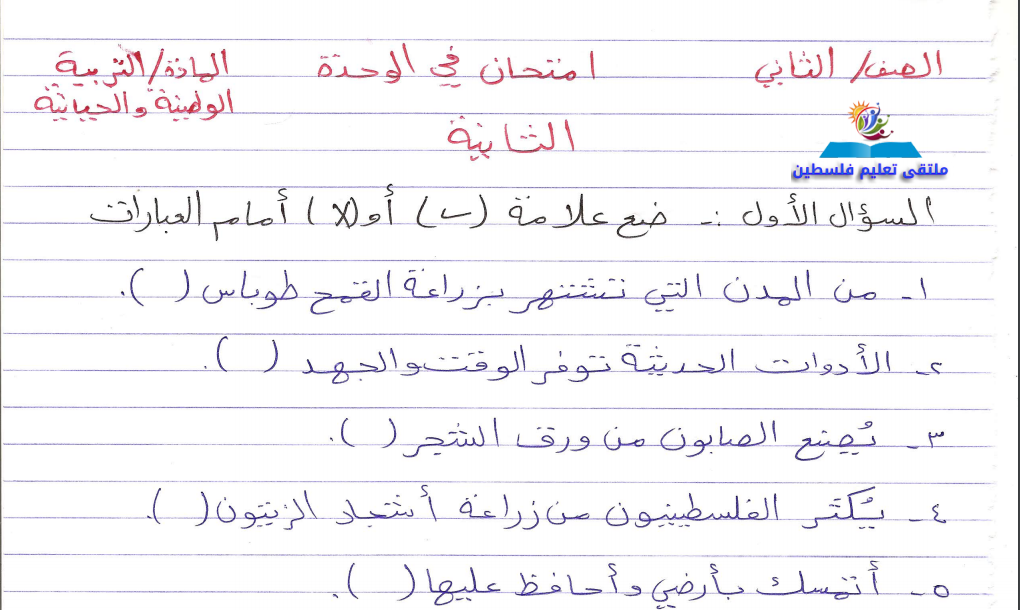 الصف/ الثاني امتحان في الوحدة المادة/ التربية
الوطنية والحياتية
الثانية
ملتقى تعليم فلسطين
السؤال الأول :- ضع علامة (✓) أو (X) أمام العبارات
١- من المدن التي تشتهر بزراعة القمح طوباس ( ).
٢- الأدوات الحديثة توفر الوقت والجهد ( ).
٣- يُصنع الصابون من ورق الشجر ( ).
٤- يُكثر الفلسطينيون من زراعة أشجار الزيتون ( ).
٥- أتمسك بأرضي وأحافظ عليها ( ).